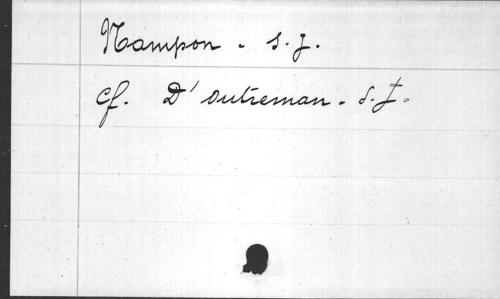 Nampon. s.j.
Cf. D'Outreman. S.J.